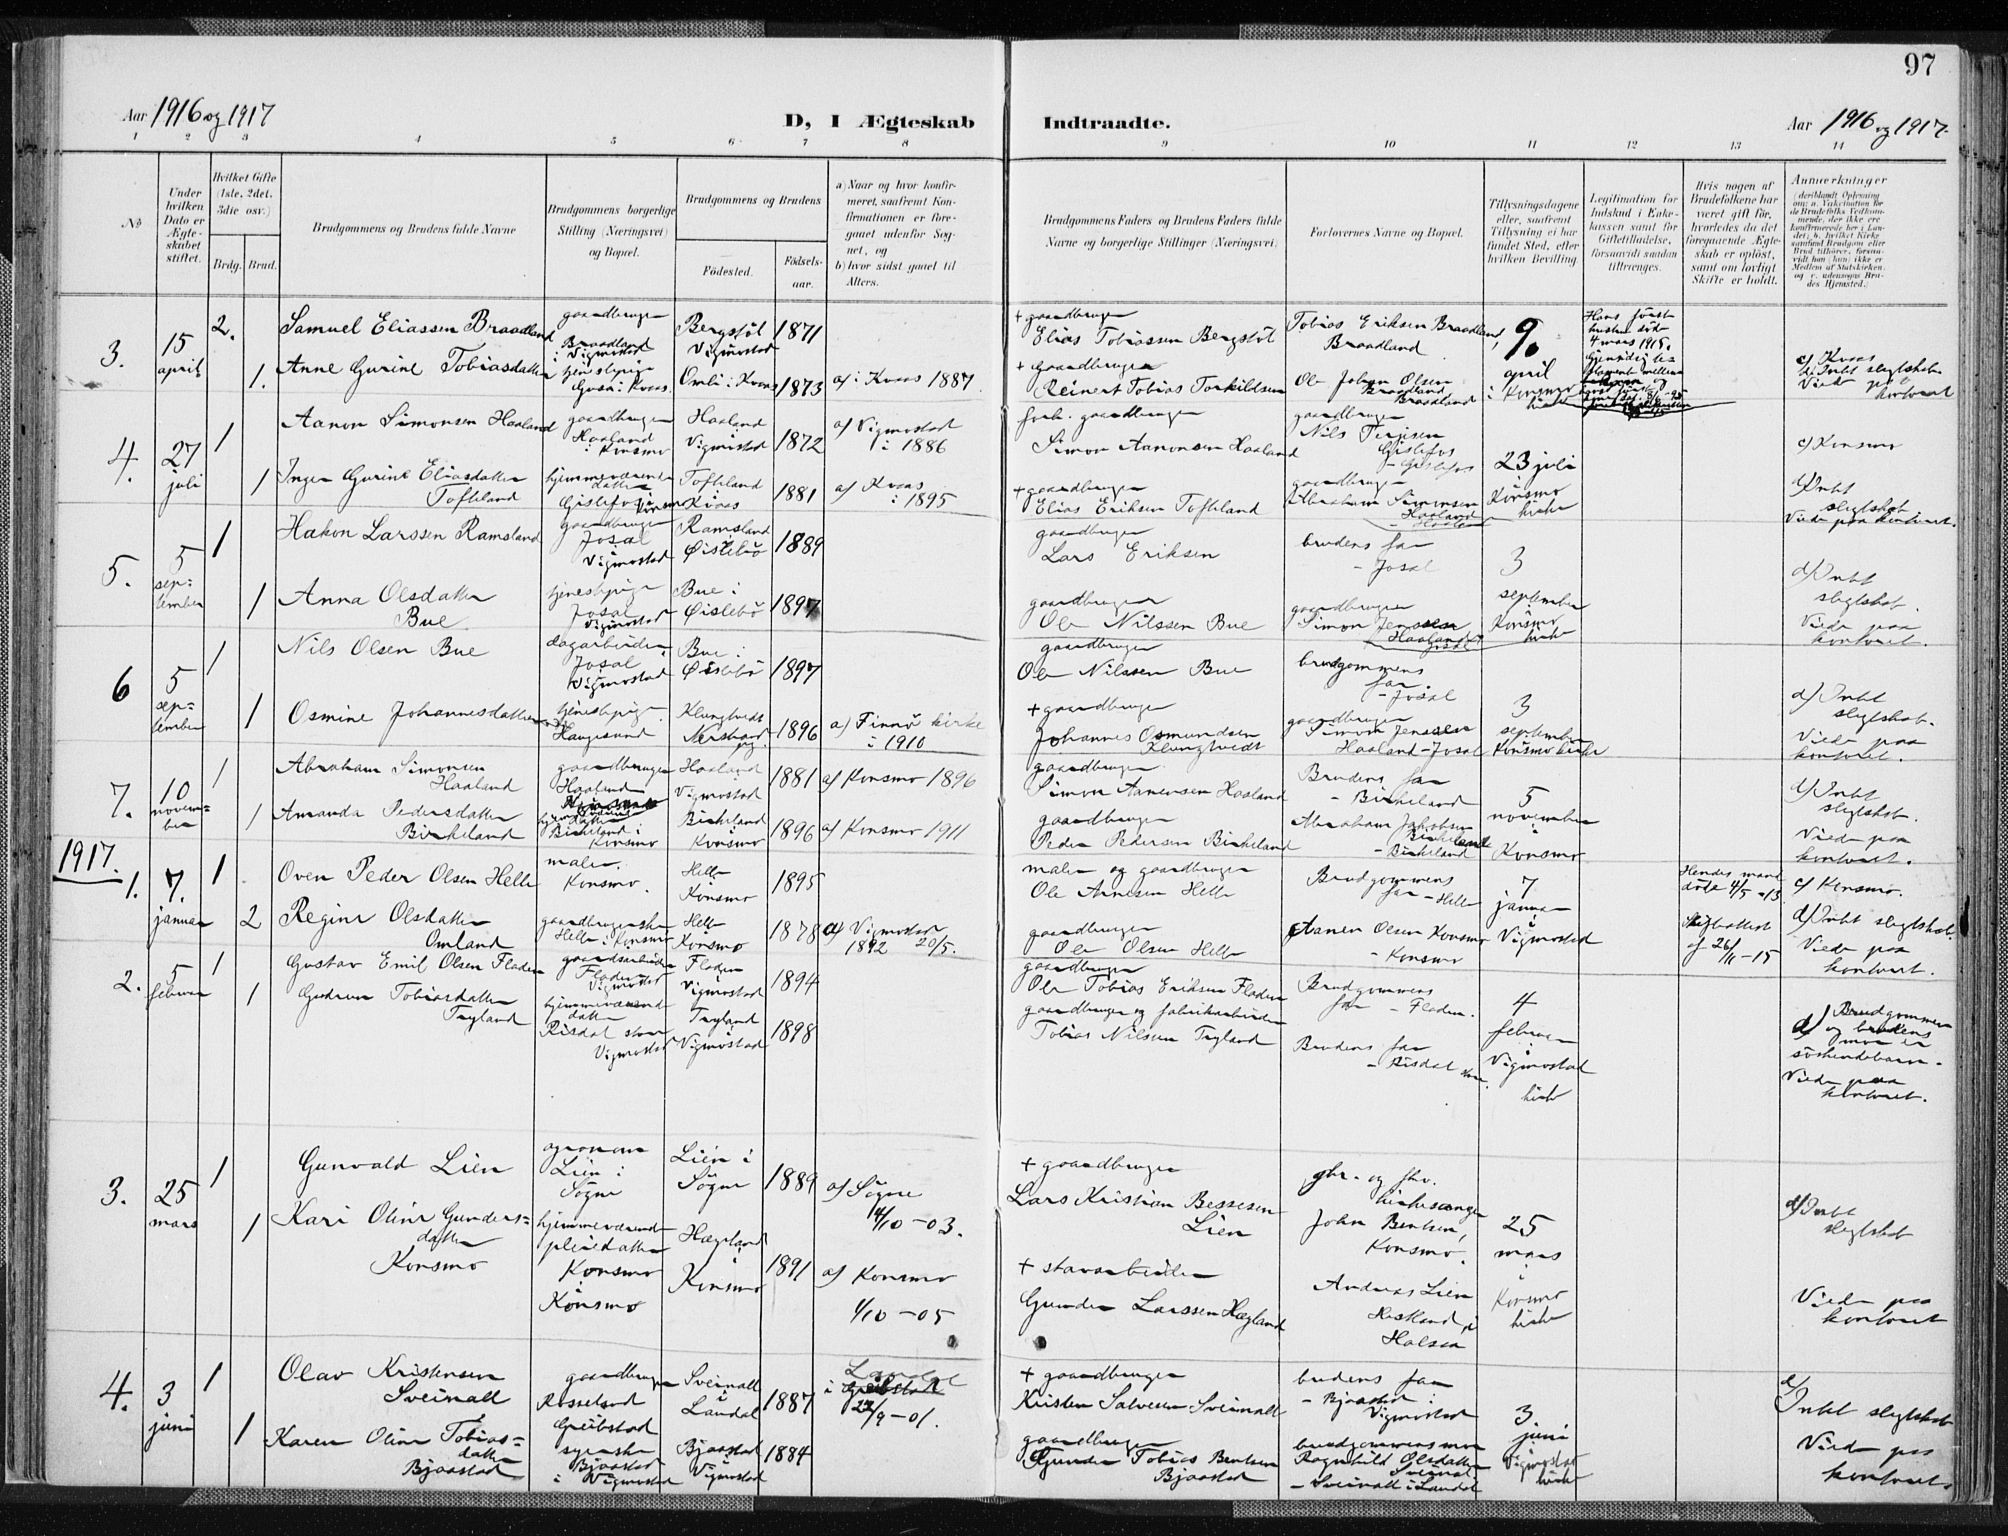 97
Aar 1916 og 1917
D, I Ægteskab Indtraadte.
Aar 1916 og 1917.
1 2 3 4 5 6 7 8 9 10 11 12 13 14
No
Under hvilken Dato er Ægteskabet stiftet.
Hvilket Gifte (1ste, 2det, 3die osv.)
Brdg. Brud.
Brudgommens og Brudens fulde Navne
Brudgommens borgerlige Stilling (Næringsvei) og Bopæl.
Brudgommens og Brudens
Fødested. Fødselsaar.
a) Naar og hvor konfirmeret, saafremt Konfirmationen er foregaaet udenfor Sognet, og
b) hvor sidst gaaet til Alters.
Brudgommens Faders og Brudens Faders fulde Navne og borgerlige Stillinger (Næringsvei)
Forlovernes Navne og Bopæl.
Tillysningsdagene eller, saafremt Tillysning ei har fundet Sted, efter hvilken Bevilling.
Legitimation for Indskud i Enkekassen samt for Giftetilladelse, forsaavidt saadan tiltrænges.
Hvis nogen af Brudefolkene har været gift før, hvorledes da det foregaaende Ægteskab er opløst, samt om lovligt Skifte er holdt.
Anmerkninger
3. 15 april
2. Samuel Eliassen Braadland
gaardbruger Braadland i Vigmostad
Bergstöl Vigmostad 1871
+ gaardbruger Elias Tobiassen Bergstöl
Tobias Eriksen Braadland, Braadland
9. april i Konsmo kirke
1. Anne Gurine Tobiasdatter
Omli i Kvaas 1873 a) i Kvaas 1887
+ gaardbruger Reinert Tobias Torkildsen
Ole Johan Olsen Braadland Braadland
c) Kvaas
d) Intet slegtskab. Viede paa kontoret
4. 27 juli
1 Aanon Simonsen Haaland
gaardbruger Haaland i Konsmo
Haaland Vigmostad 1872 a) Vigmostad i 1886
forh. gaardbruger Simon Aanonsen Haaland
gaardbruger Nils Terjesen Gislefos - Gislefos
23 juli i Konsmo kirke
c) Konsmo
1 Inger Gurine Eliasdatter Tofteland
hjemmeværende datter Gislefos i Konsmo
Tofteland Kvaas 1881 a) Kvaas i 1895
+ gaardbruger Elias Eriksen Tofteland
gaardbruger Abraham Simonsen Haaland
d) Intet slegtskab. Viede paa kontoret.
5. 5 september
1 Hakon Larssen Ramsland
gaardbruger Josal Vigmostad
Ramsland Øislebö 1889
gaardbruger Lars Eriksen
brudens far - Josal
3 september i Konsmo kirke
1 Anna Olsdatter Bue
tjenestepige Josal Vigmostad
Bue i Øislebö 1897
gaardbruger Ole Nilssen Bue
gaardbruger Simon Jenssen Haaland - Josal
d) Intet slegtskab. Viede paa kontoret.
6 5 september
1 Nils Olsen Bue
dagarbeider Josal Vigmostad
Bue i Øislebö 1897
gaardbruger Ole Nilssen Bue
brudgommens far - Josal
3 september i Konsmo kirke
1 Osmine Johannesdatter
tjenestepige Haugesund
Klungtvedt Nerstrand 1896 a) Finnö kirke i 1910
+ gaardbruger Johannes Osmundsen Klungtvedt
gaardbruger Simon Jenssen Haaland - Josal
d) Intet slegtskab. Viede paa kontoret.
7. 10 november
1 Abraham Simonsen Haaland
gaardbruger Haaland
Haaland Vigmostad 1881 a) Konsmo 1896
gaardbruger Simon Aanensen Haaland
Brudens far - Birkeland
5 november i Konsmo
1 Amanda Pedersdatter Birkeland
hjemmeværende datter Birkeland i Konsmo
Birkeland Konsmo 1896 a) Konsmo 1911
gaardbruger Peder Pedersen Birkeland
Abraham Jakobsen Birkeland - Birkeland
d) Intet slegtskab. Viede paa kontoret.
1917.
1. 7. januar
1 Oven Peder Olsen Helle
maler Konsmo.
Helle Konsmo 1895
maler og gaardbruger Ole Arnesen Helle
Brudgommens far - Helle
7 januar i Vigmostad
Hendes mand døde 4/5 - 13
c) Konsmo.
2 Regine Olsdatter Omland
gaardbrugerske Helle i Konsmo
Helle Konsmo 1878 a) Vigmostad 1892 20/5.
gaardbruger Ole Olsen Helle
Aanen Olsen Konsmo - Konsmo
af 26/11 - 15
d) Intet slegtskab. Viede paa kontoret.
2. 5 februar
1 Gustav Emil Olsen Fladen
gaardsarbeider Fladen Vigmostad
Fladen Vigmostad 1894
gaardbruger Ole Tobias Eriksen Fladen
Brudgommens far - Fladen.
4 februar i Vigmostad kirke
1 Gudrun Tobiasdatter Tryland
hjemmeværende datter Risdal Vigmostad
Tryland Vigmostad 1898
gaardbruger og fabrikarbeider Tobias Nilsen Tryland
Brudens far - Risdal
d) Brudgommen og brudens mor er söskendebarn. Viede paa kontoret.
3. 25 mars
1 Gunvald Lien
agronom Lien i Søgne
Lien i Søgne 1889 a) Søgne 4/10 - 03.
+ gaardbruger Lars Kristian Bessesen Lien
gbr. og fhv. kirkesanger John Bentsen, Konsmo.
25 mars i Konsmo kirke
d) Intet slegtskab
1 Kari Oline Gundersdatter Konsmo
hjemmeværende pleiedatter Konsmo Konsmo
Hægeland Konsmo 1891 a) Konsmo 1/10 - 05
+ stavarbeider Gunder Larssen Hægland
Andreas Lien Heskland i Halsen
Viede paa kontoret
4. 3 juni
1 Olav Kristensen Sveinall
gaardbruger Rosseland Greibstad
Sveinall i Laudal 1887 Laudal 22/9 - 01.
+ gaardbruger Kristen Salvesen Sveinall
brudens far - Bjaastad i Vigmostad
3 juni i Vigmostad kirke
1 Karen Oline Tobiasdatter Bjaastad
syerske Bjaastad i Vigmostad
Bjaastad i Vigmostad 1884
gaardbruger Gunder Tobias Bentsen Bjaastad
brudgommens mor Ragnhild Olsdatter Sveinal - Sveinall i Laudal
d) Intet slegtskab Viede paa kontoret.